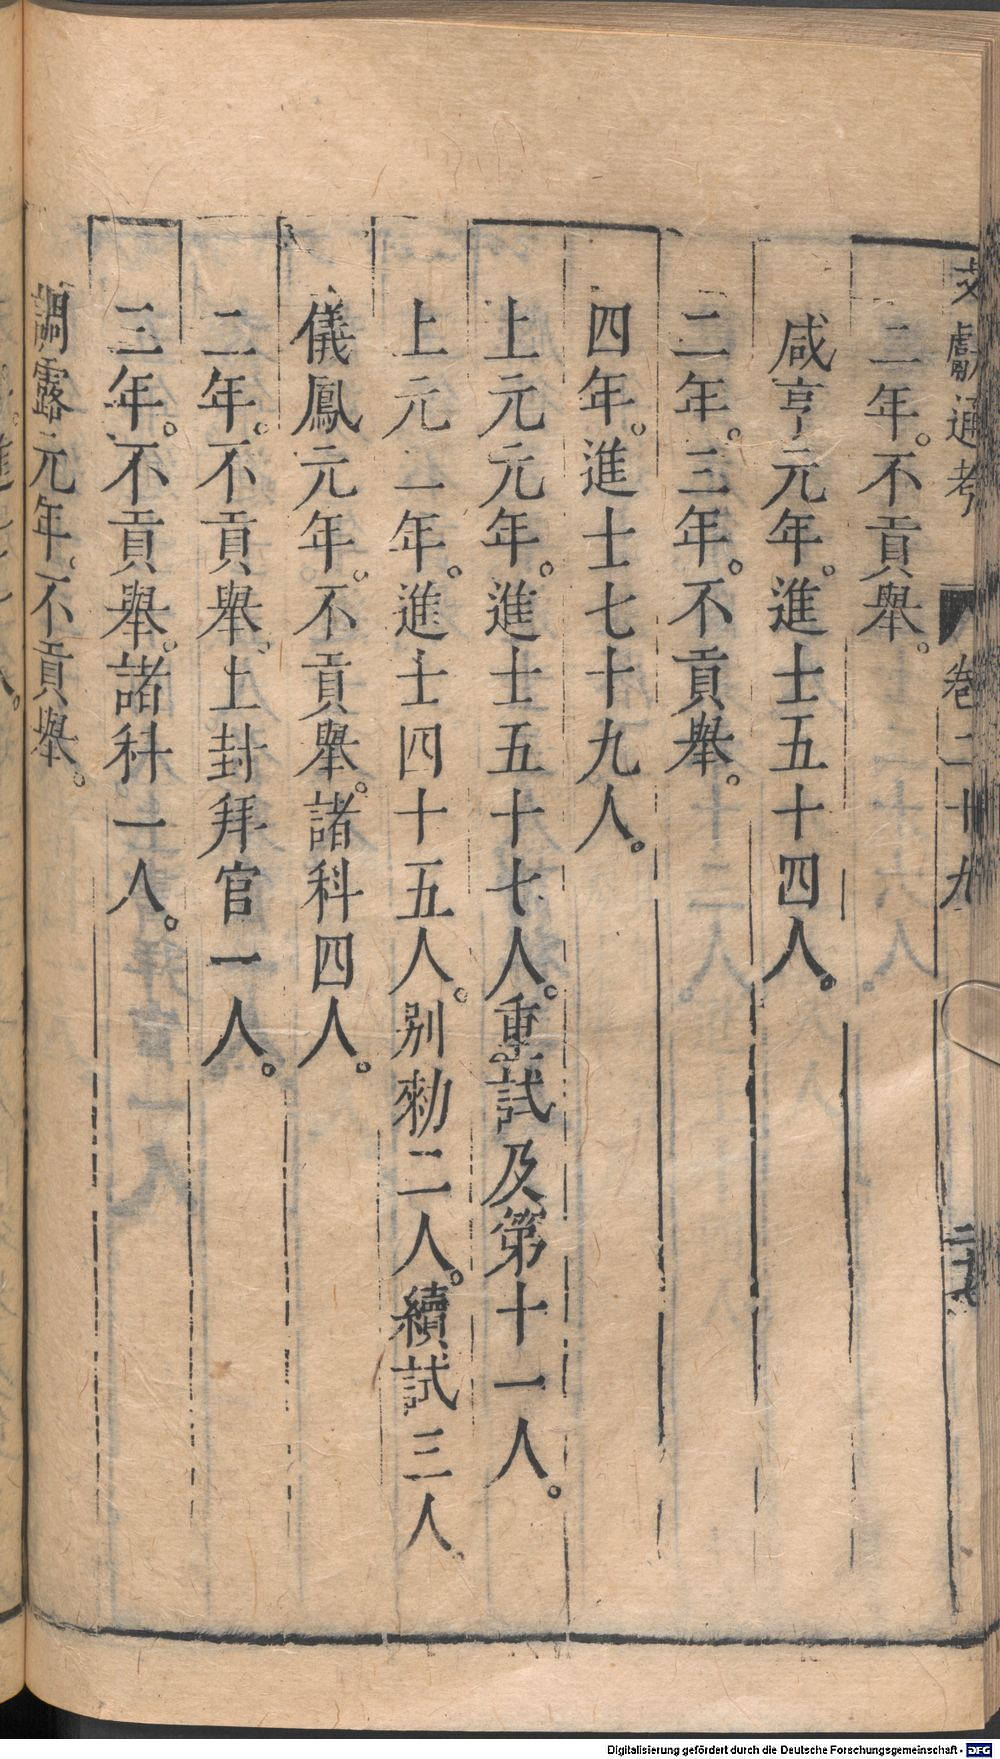 文獻通考 卷二十九 二十七
二年。不貢舉。
咸亨元年。進士五十四人。
二年。三年。不貢舉。
四年。進士七十九人。
上元元年。進士五十七人。重試及第十一人。
上元二年。進士四十五人。別勑二人。續試三人。
儀鳳元年。不貢舉。諸科四人。
二年。不貢舉。上封拜官一人。
三年。不貢舉。諸科一人。
調露元年。不貢舉。
Digitalisierung gefördert durch die Deutsche Forschungsgemeinschaft - DFG